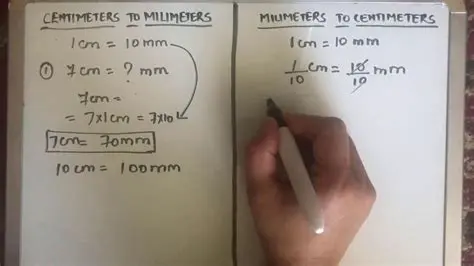 CENTIMETERS TO MILIMETERS
1cm = 10mm
① 7cm = ? mm
7cm =
= 7x1cm = 7x10
7cm = 70mm
10cm = 100mm
MILIMETERS TO CENTIMETERS
1cm = 10mm
1/10 cm = 10/10 mm